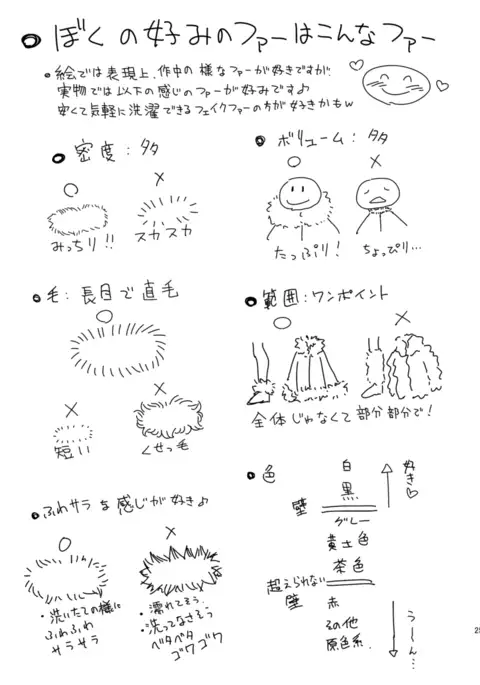 ぼくの好みのファーはこんなファー
絵では表現上、作中の様なファーが好きですが
実物では以下の感じのファーが好みです♪
安くて気軽に洗濯できるフェイクファーの方が好きかもw
密度:多
○
×
みっちり!!
スカスカ
ボリューム:多
○
×
たっぷり!
ちょっぴり…
毛:長目で直毛
○
×
×
短い
くせっ毛
範囲:ワンポイント
○
×
全体じゃなくて部分部分で!
ふわサラな感じが好き♪
○
×
・洗いたての様に
ふわふわ
サラサラ
・濡れてそう、
・洗ってなさそう
ベタベタ
ゴワゴワ
色
白
黒
壁
グレー
黄土色
茶色
超えられない
壁
赤
その他
原色系
好き♡
うーん…